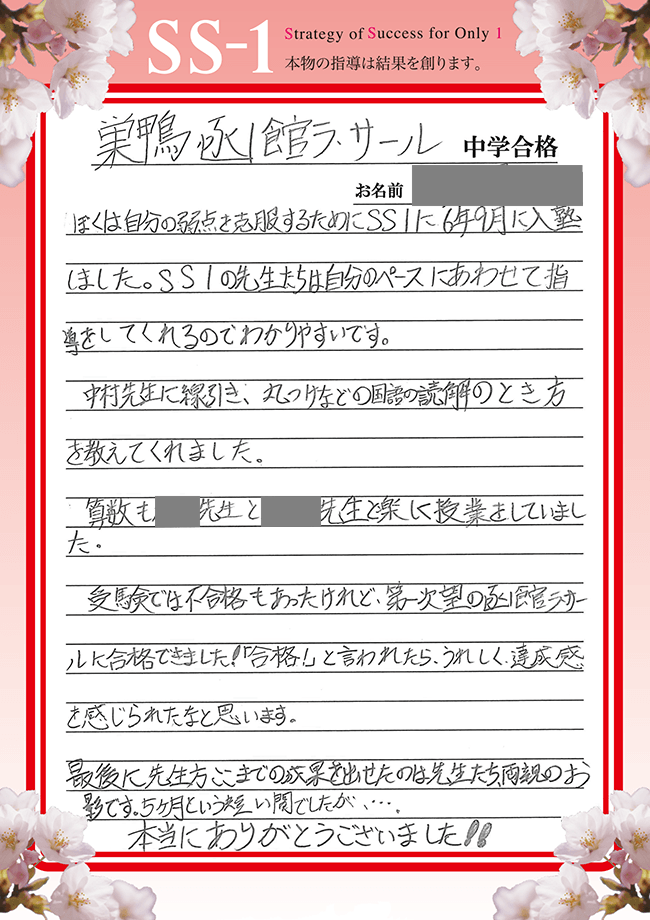 SS-1
Strategy of Success for Only 1
本物の指導は結果を創ります。
巣鴨 函館ラ・サール 中学合格
お名前
ぼくは自分の弱点を克服するためにSS1に6年9月に入塾
しました。SS1の先生たちは自分のペースにあわせて指
導をしてくれるのでわかりやすいです。
中村先生に線引き、丸つけなどの国語の読解のとき方
を教えてくれました。
算数も 先生と 先生と楽しく授業をしていまし
た。
受験では不合格もあったけれど、第一次望の函館ラ・サー
ルに合格できました!「合格!」と言われたら、うれしく、達成感
を感じられたなと思います。
最後に先生方ここまでの成果を出せたのは先生たち両親のお
影です。5ヶ月という短い間でしたが、…。
本当にありがとうございました!!